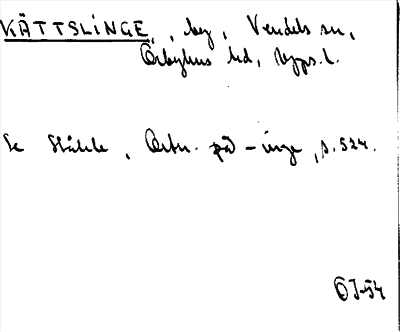 KÄTTSLINGE, by, Vendels sn,
Örbyhus hd, Upps. l.
Se Ståhle, Ortn. på -inge, s. 524.
ÖJ-54